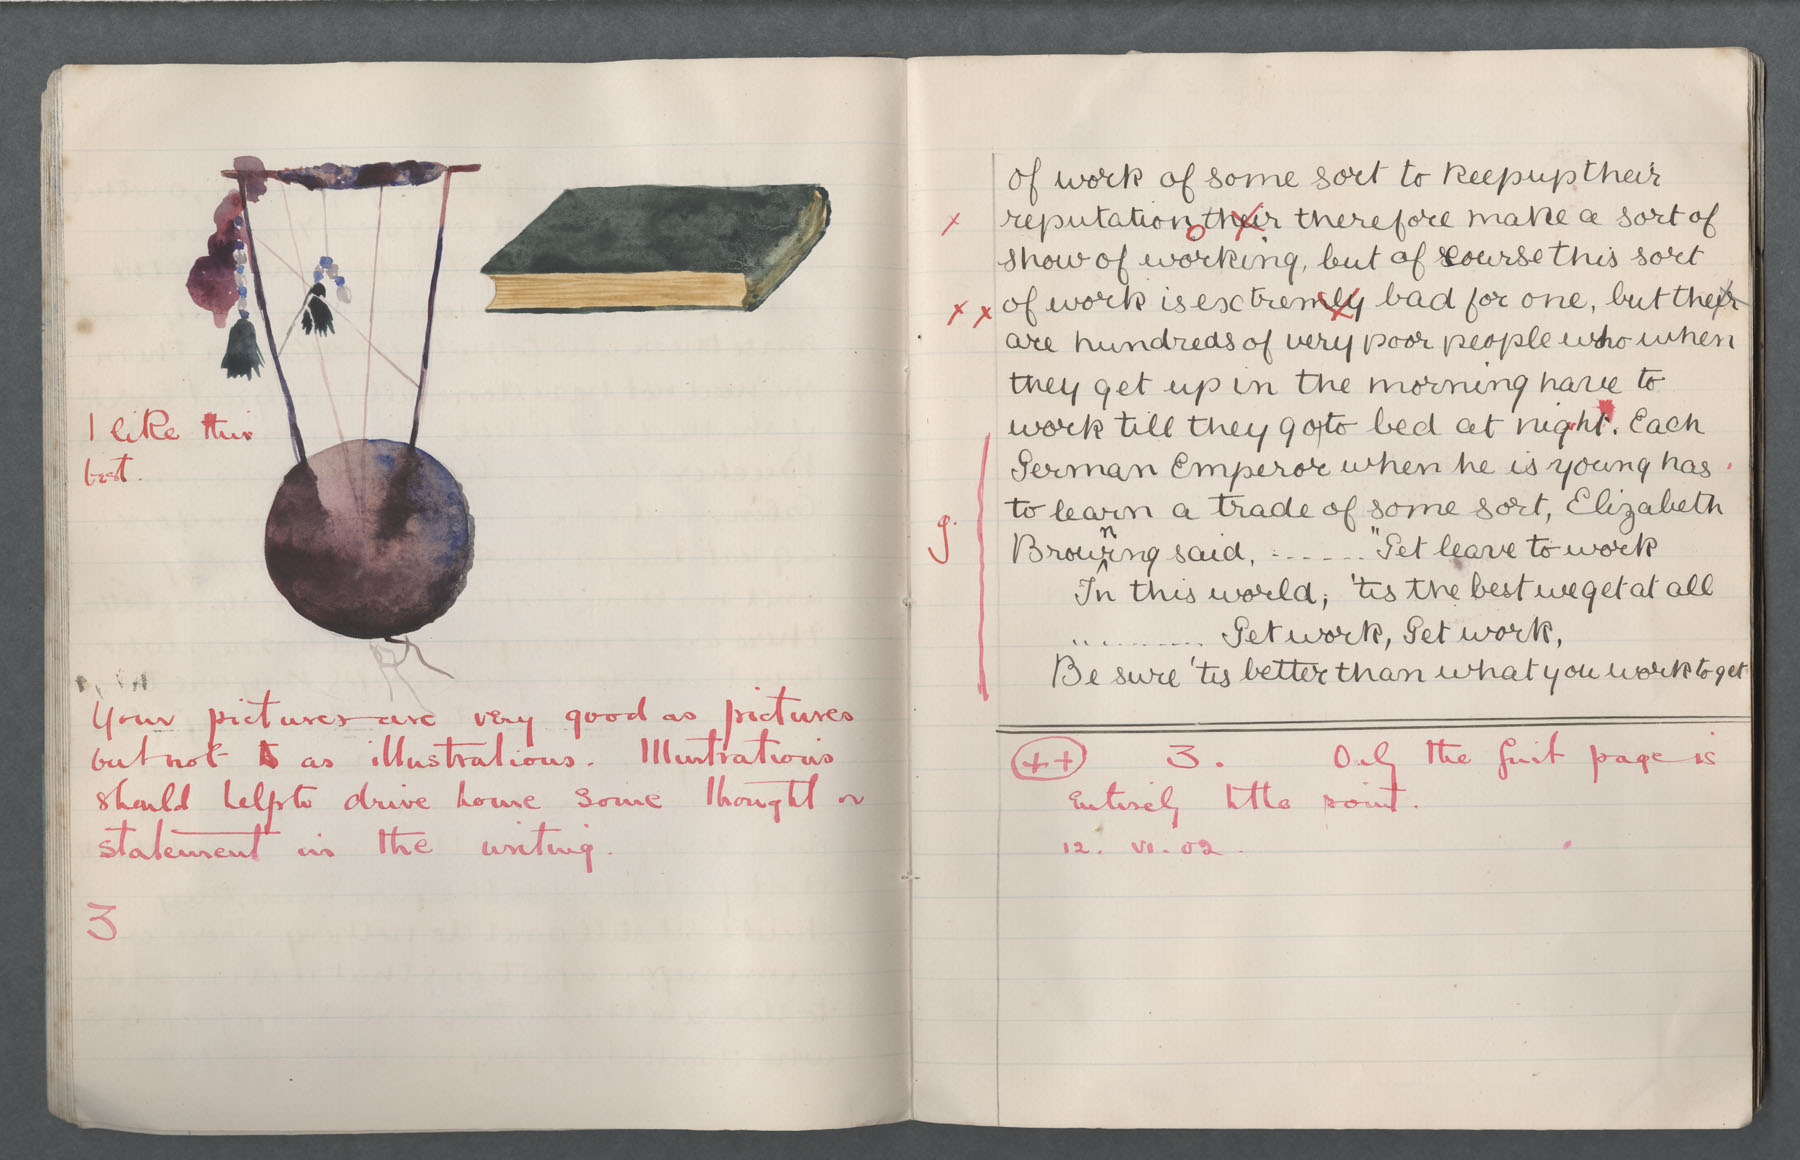 I like this
best.
Your pictures are very good as pictures
but not as illustrations. Illustrations
should help to drive home some thought or
statement in the writing.
3
of work of some sort to keep up their
x reputation, their therefore make a sort of
show of working, but of course this sort
x x of work is extremly bad for one, but their
are hundreds of very poor people who when
they get up in the morning have to
work till they go to bed at night. Each
German Emperor when he is young has
to learn a trade of some sort, Elizabeth
g. Browning said, ...... "Get leave to work
In this world; 'tis the best we get at all
.......... Get work, Get work,
Be sure 'tis better than what you work to get
++ 3. Only the first page is
entirely to the point.
12. VI. 02.